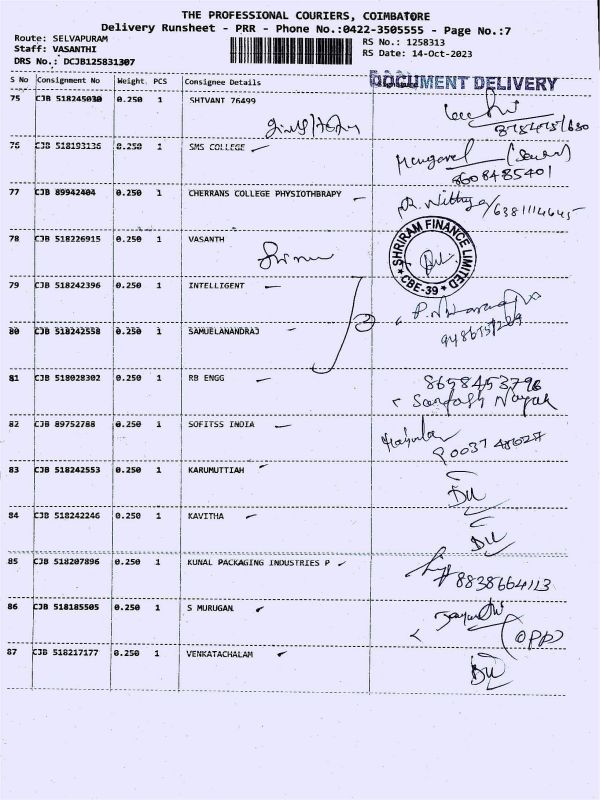 THE PROFESSIONAL COURIERS, COIMBATORE
Delivery Runsheet - PRR - Phone No.:0422-3505555 - Page No.:7
Route: SELVAPURAM
RS No.: 1258313
Staff: VASANTHI
RS Date: 14-Oct-2023
DRS No.: DCJB125831307
S No Consignment No Weight PCS Consignee Details
DOCUMENT DELIVERY
75 CJB 518245030 0.250 1 SHTVANT 76499
76 CJB 518193136 0.250 1 SMS COLLEGE
8608485401
77 CJB 89942404 0.250 1 CHERRANS COLLEGE PHYSIOTHBRAPY
78 CJB 518226915 0.250 1 VASANTH
SHRIRAM FINANCE LIMITED
* CBE-39 *
79 CJB 518242396 0.250 1 INTELLIGENT
80 CJB 518242558 0.250 1 SAMUELANANDRAJ
81 CJB 518028302 0.250 1 RB ENGG
8658453796
Santosh Nayak
82 CJB 89752788 0.250 1 SOFITSS INDIA
83 CJB 518242553 0.250 1 KARUMUTTIAH
84 CJB 518242246 0.250 1 KAVITHA
85 CJB 518207896 0.250 1 KUNAL PACKAGING INDUSTRIES P
8838664113
86 CJB 518185505 0.250 1 S MURUGAN
(OPP)
87 CJB 518217177 0.250 1 VENKATACHALAM